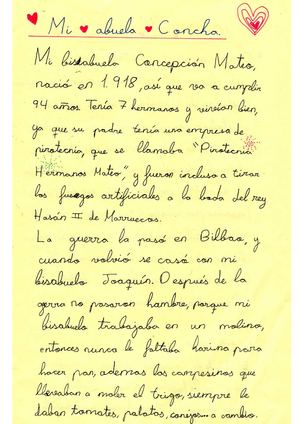 Mi abuela Concha.
Mi bisabuela Concepción Mateo,
nació en 1.918, así que va a cumplir
94 años. Tenía 7 hermanos y vivían bien,
ya que su padre tenía una empresa de
pirotecnia, que se llamaba "Pirotecnia
Hermanos Mateo", y fueron incluso a tirar
los fuegos artificiales a la boda del rey
Hasán II de Marruecos.
La guerra la pasó en Bilbao, y
cuando volvió se casó con mi
bisabuelo Joaquín. Después de la
gerra no pasaron hambre, porque mi
bisabuelo trabajaba en un molino,
entonces nunca le faltaba harina para
hacer pan, ademas los campesinos que
llevaban a moler el trigo, siempre le
daban tomates, patatas, conejos... a cambio.